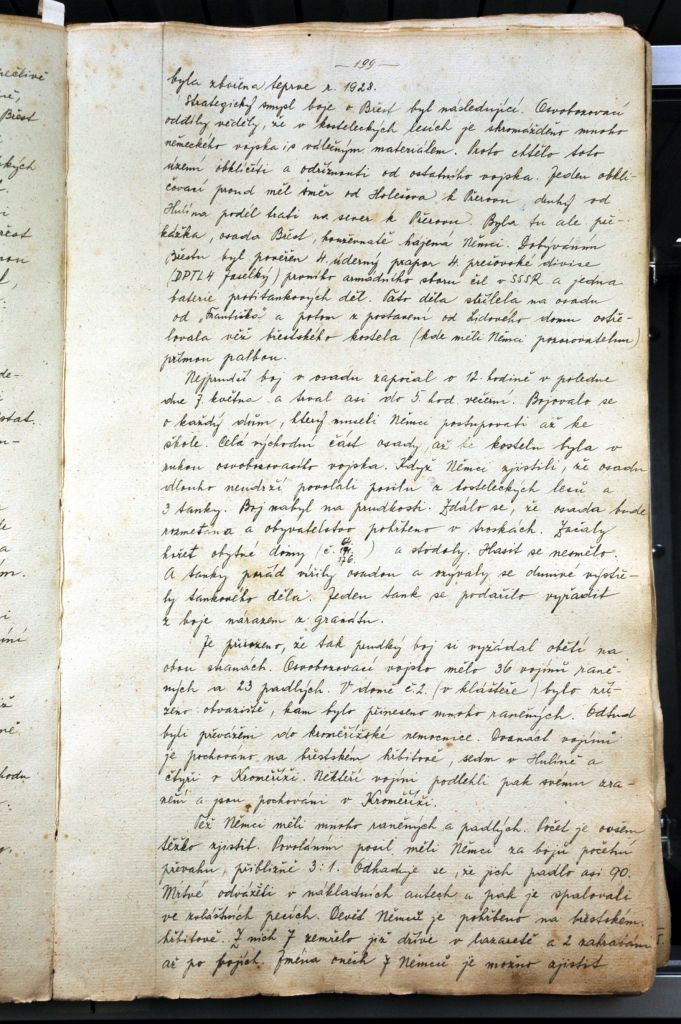 — 199 —
byla zbořena teprve r. 1928.
Strategický smysl boje o Břest byl následující. Osvobozovací
oddíly věděly, že v kosteleckých lesích je shromážděno mnoho
německého vojska i s válečným materiálem. Proto chtělo toto
území obklíčiti a odříznouti od ostatního vojska. Jeden obkli-
čovací proud měl směr od Holešova k Přerovu, druhý od
Hulína podél trati na sever k Přerovu. Byla tu ale pře-
kážka, osada Břest, houževnatě hájená Němci. Dobýváním
Břestu byl pověřen 4. úderný prapor 4. prešovské divise
(DPTL4 Jaselský) prvního armádního sboru čsl v SSSR a jedna
baterie protitankových děl. Tato děla střílela na osadu
od „Františků" a potom z postavení od Lidového domu ostře-
lovala věž břestského kostela (kde měli Němci pozorovatelnu)
přímou palbou.
Nejprudší boj v osadu započal o 12 hodině v poledne
dne 7. května a trval asi do 5 hod. večerní. Bojovalo se
o každý dům, který museli Němci postupovati až ke
škole. Celá východní část osady, až ke kostelu byla v
rukou osvobozovacího vojska. Když Němci zjistili, že osadu
dlouho neudrží povolali posilu z kosteleckých lesů a
3 tanky. Boj nabyl na prudkosti. Zdálo se, že osada bude
rozmetána a obyvatelstvo pohřbeno v troskách. Začaly
hořet obytné domy (č. 176 ) a stodoly. Hasit se nesmělo.
A tanky pořád vířily osadou a ozývaly se dunivé výstře-
ly tankového děla. Jeden tank se podařilo vyřadit
z boje nárazem z granátu.
Je přirozeno, že tak prudký boj si vyžádal obětí na
obou stranách. Osvobozovací vojsko mělo 36 vojínů raně-
ných a 23 padlých. V domě č. 2. (v klášteře) bylo zří-
zeno obvaziště, kam bylo přineseno mnoho raněných. Odtud
byli převáženi do kroměřížské nemocnice. Dvanáct vojínů
je pochováno na břestském hřbitově, sedm v Hulíně a
čtyři v Kroměříži. Někteří vojíni podlehli pak svému zra-
nění a jsou pochováni v Kroměříži.
Též Němci měli mnoho raněných a padlých. Počet je ovšem
těžko zjistit. Povoláním posil měli Němci za bojů početní
převahu, přibližně 3:1. Odhaduje se, že jich padlo asi 90.
Mrtvé odváželi v nákladních autech a pak je spalovali
ve zvláštních pecích. Devět Němců je pohřbeno na břestském
hřbitově. Z nich 7 zemřelo již dříve v lazaretě a 2 zahrabáni
až po bojích. Jména oněch 7 Němců je možno zjistit